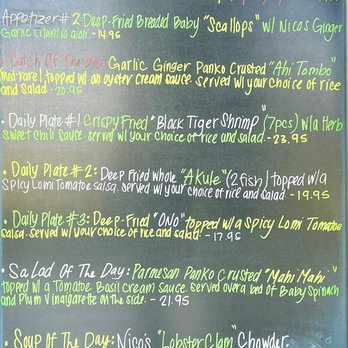 Appetizer # 2: Deep-Fried Breaded Baby "Scallops" w/ Nicos Ginger
Garlic Cilantro aioli. - 14.95
• Catch Of The Day: Garlic Ginger Panko Crusted "Ahi Tombo"
(med-rare) topped w/ an oyster cream sauce. served w/ your choice of rice
and salad. - 20.95
• Daily Plate #1 Crispy Fried "Black Tiger Shrimp" (7pcs) w/a Herb
sweet chili sauce. served w/ your choice of rice and salad. - 23.95
• Daily Plate # 2: Deep Fried whole "Akule" (2 fish) topped w/a
Spicy Lomi Tomatoe salsa. served w/ your choice of rice and salad - 19.95
• Daily Plate # 3: Deep-Fried "ONO" topped w/a Spicy Lomi Tomatoe
salsa. served w/ your choice of rice and salad - 17.95
• Salad Of The Day: Parmesan Panko Crusted "Mahi Mahi"
topped w/ a Tomatoe Basil Cream Sauce. served over a bed of Baby Spinach
and Plum Vinaigarette on the side. - 21.95
• Soup Of The Day: Nico's "Lobster Clam" Chowder.